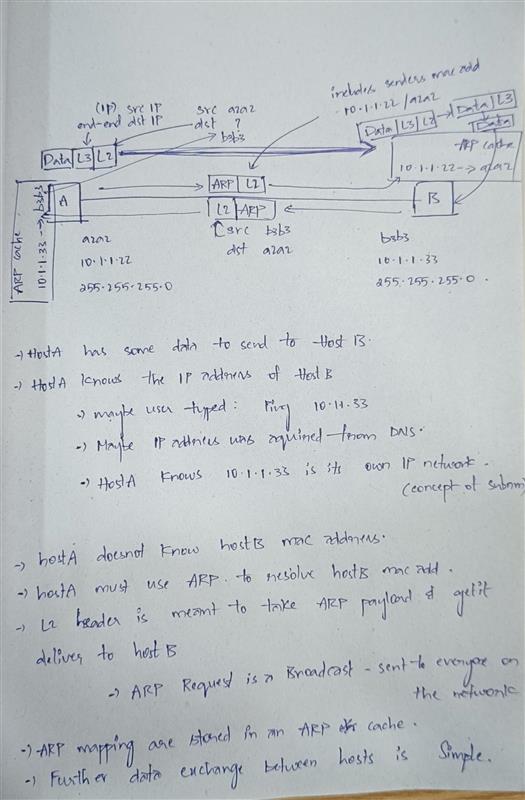 includes senders mac add
10.1.1.22 / a2a2
(IP) src IP
end-end dst IP
src a2a2
dst ?
b3b3
Data L3 L2
Data L3 L2 → Data L3
Data
ARP cache
10.1.1.22 → a2a2
ARP L2
L2 ARP
ARP cache
10.1.1.33 → b3b3
A
B
src b3b3
dst a2a2
a2a2
10.1.1.22
255.255.255.0
b3b3
10.1.1.33
255.255.255.0.
→ Host A has some data to send to Host B.
→ Host A knows the IP address of Host B
→ maybe user typed: Ping 10.11.33
→ Maybe IP address was aquired from DNS.
→ Host A knows 10.1.1.33 is its own IP network.
(concept of
→ host A doesnot know host B mac address.
→ host A must use ARP. to resolve host B mac add.
→ L2 header is meant to take ARP payload & get it
delives to host B
→ ARP Request is a Broadcast - sent to everyone on
the network
→ ARP mapping are stored in an ARP cache.
→ Further data exchange between hosts is simple.